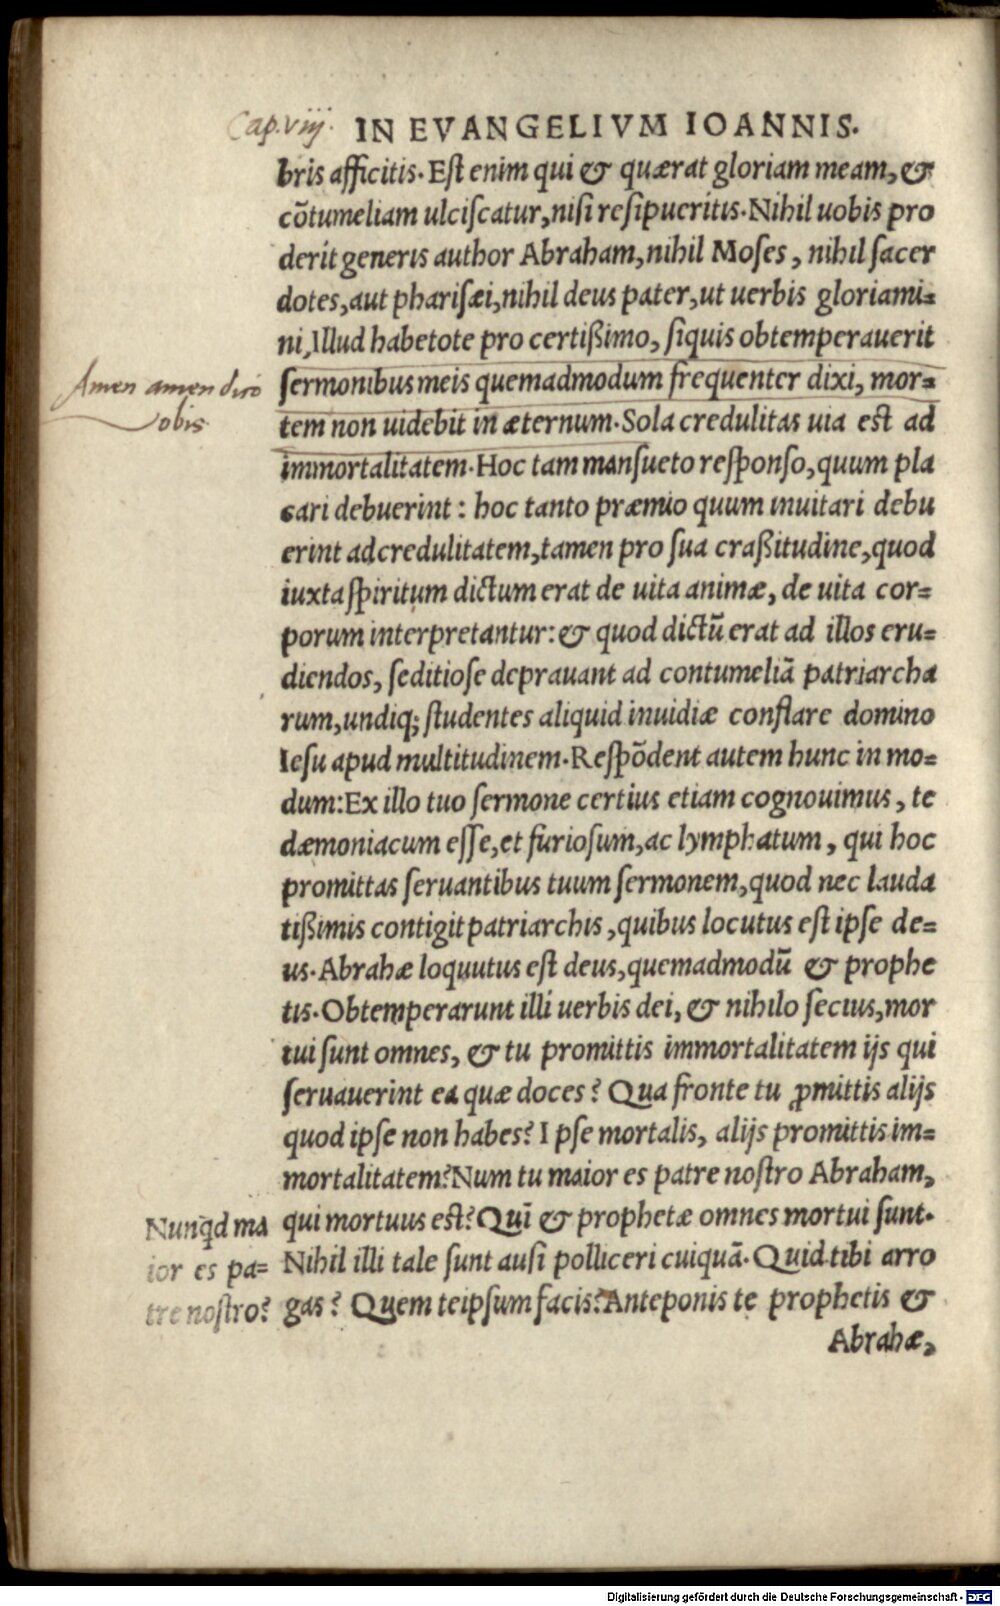 Cap. viij.
IN EVANGELIVM IOANNIS.
bris afficitis. Est enim qui & quærat gloriam meam, &
cõtumeliam ulciscatur, nisi resipueritis. Nihil uobis pro
derit generis author Abraham, nihil Moses, nihil sacer
dotes, aut pharisæi, nihil deus pater, ut uerbis gloriami=
ni, Illud habetote pro certißimo, siquis obtemperauerit
Amen amen dico
uobis
sermonibus meis quemadmodum frequenter dixi, mor=
tem non uidebit in æternum. Sola credulitas uia est ad
immortalitatem. Hoc tam mansueto responso, quum pla
cari debuerint: hoc tanto præmio quum inuitari debu
erint ad credulitatem, tamen pro sua craßitudine, quod
iuxta spiritum dictum erat de uita animæ, de uita cor=
porum interpretantur: & quod dictũ erat ad illos eru=
diendos, seditiose deprauant ad contumeliã patriarcha
rum, undiq; studentes aliquid inuidiæ conflare domino
Iesu apud multitudinem. Respõdent autem hunc in mo=
dum: Ex illo tuo sermone certius etiam cognouimus, te
dæmoniacum esse, et furiosum, ac lymphatum, qui hoc
promittas seruantibus tuum sermonem, quod nec lauda
tißimis contigit patriarchis, quibus locutus est ipse de=
us. Abrahæ loquutus est deus, quemadmodũ & prophe
tis. Obtemperarunt illi uerbis dei, & nihilo secius, mor
tui sunt omnes, & tu promittis immortalitatem ijs qui
seruauerint ea quæ doces? Qua fronte tu ꝓmittis alijs
quod ipse non habes? Ipse mortalis, alijs promittis im=
mortalitatem? Num tu maior es patre nostro Abraham,
Nunq̃d ma
ior es pa=
tre nostro?
qui mortuus est? Quĩ & prophetæ omnes mortui sunt.
Nihil illi tale sunt ausi polliceri cuiquã. Quid tibi arro
gas? Quem teipsum facis? Anteponis te prophetis &
Abrahæ,
Digitalisierung gefördert durch die Deutsche Forschungsgemeinschaft - DFG